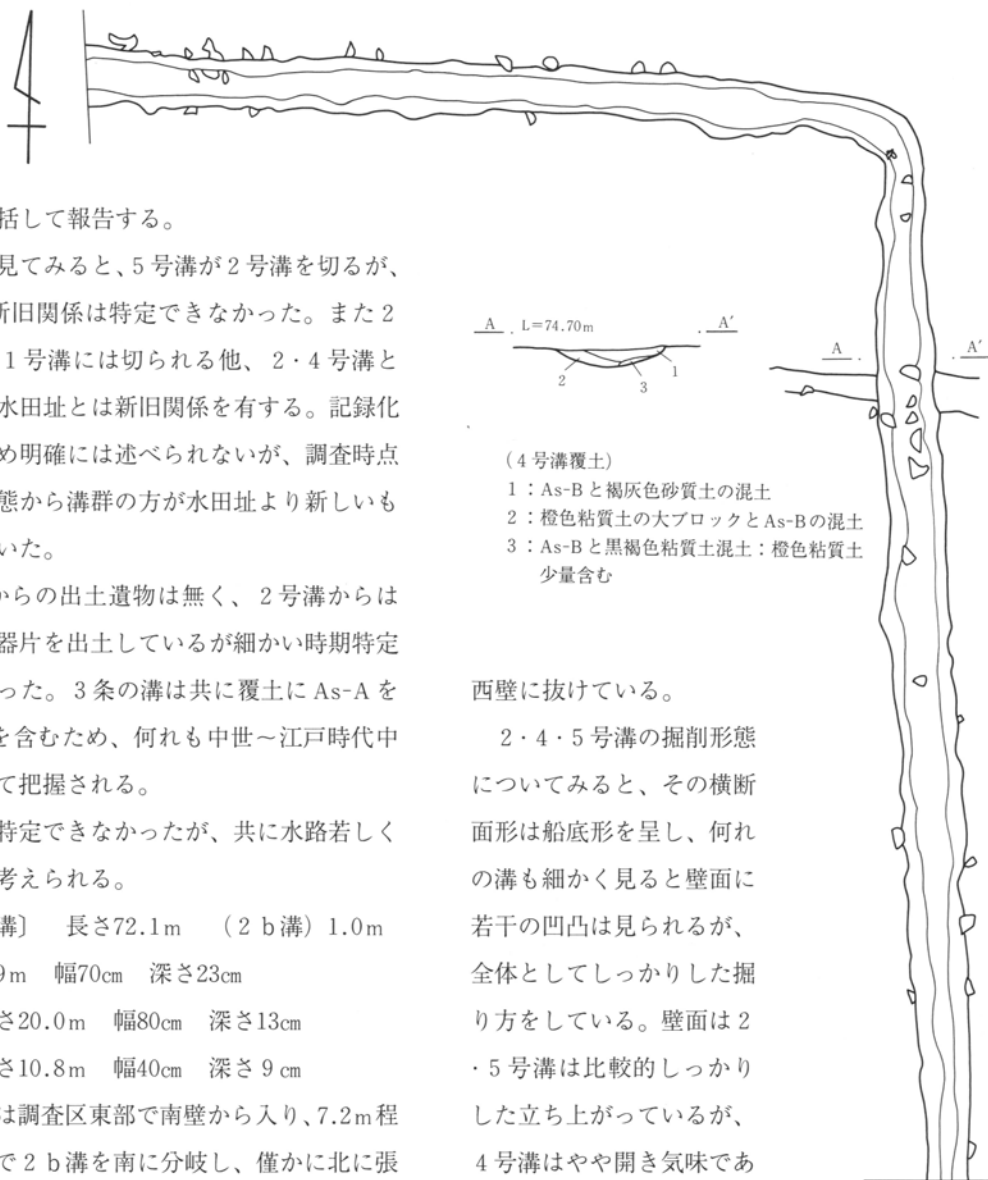 括して報告する。
見てみると、5号溝が2号溝を切るが、
新旧関係は特定できなかった。また2
1号溝には切られる他、2・4号溝と
水田址とは新旧関係を有する。記録化
め明確には述べられないが、調査時点
態から溝群の方が水田址より新しいも
いた。
からの出土遺物は無く、2号溝からは
器片を出土しているが細かい時期特定
った。3条の溝は共に覆土にAs-Aを
を含むため、何れも中世～江戸時代中
て把握される。
特定できなかったが、共に水路若しく
考えられる。
溝〕 長さ72.1m （2b溝）1.0m
9m 幅70cm 深さ23cm
さ20.0m 幅80cm 深さ13cm
さ10.8m 幅40cm 深さ9cm
は調査区東部で南壁から入り、7.2m程
で2b溝を南に分岐し、僅かに北に張
A L=74.70m A′
2 3 1
（4号溝覆土）
1：As-Bと褐灰色砂質土の混土
2：橙色粘質土の大ブロックとAs-Bの混土
3：As-Bと黒褐色粘質土混土：橙色粘質土
少量含む
A A′
西壁に抜けている。
2・4・5号溝の掘削形態
についてみると、その横断
面形は船底形を呈し、何れ
の溝も細かく見ると壁面に
若干の凹凸は見られるが、
全体としてしっかりした掘
り方をしている。壁面は2
・5号溝は比較的しっかり
した立ち上がっているが、
4号溝はやや開き気味であ